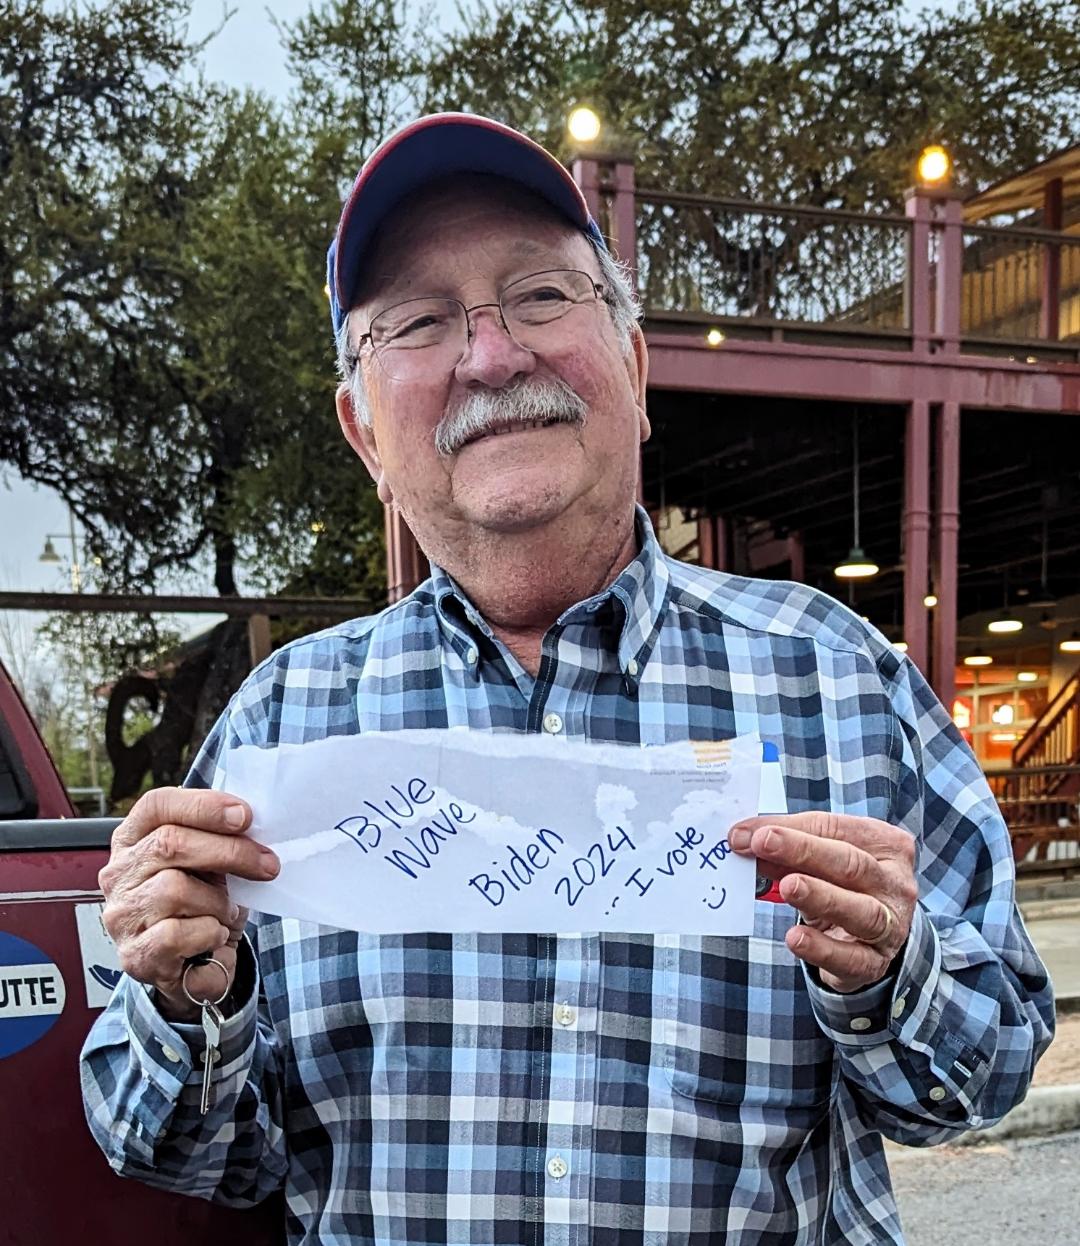 Blue
Wave
Biden
2024
I vote
too
UTTE